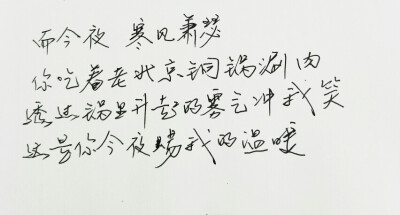 而今夜 寒风萧瑟
你吃着老北京铜锅涮肉
透过锅里升起的雾气冲我笑
这是你今夜赐我的温暖